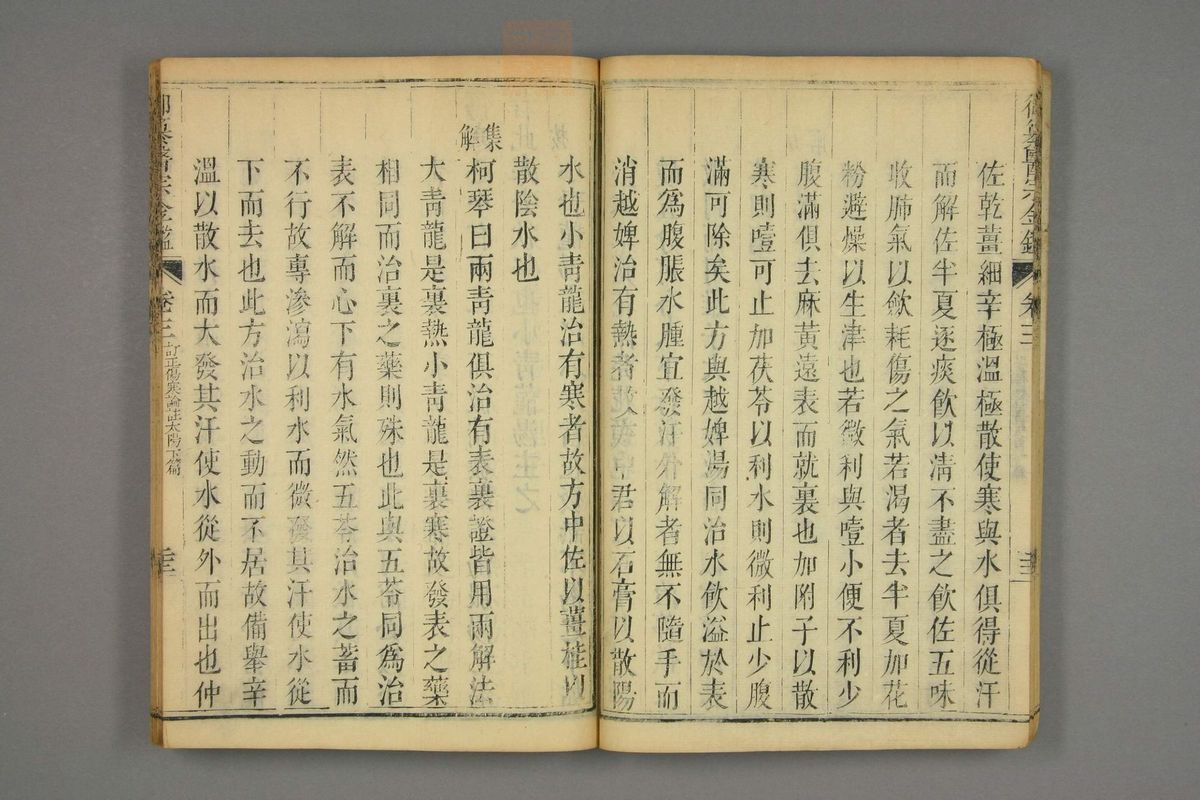 佐乾薑細辛極溫極散使寒與水俱得從汗
而解佐半夏逐痰飲以清不盡之飲佐五味
收肺氣以斂耗傷之氣若渴者去半夏加花
粉避燥以生津也若微利與噎小便不利少
腹滿俱去麻黃遠表而就裏也加附子以散
寒則噎可止加茯苓以利水則微利止少腹
滿可除矣此方與越婢湯同治水飲溢於表
而爲腹脹水腫宜發汗外解者無不隨手而
消越婢治有熱者故方中君以石膏以散陽
水也小青龍治有寒者故方中佐以薑桂以
散陰水也
集解
柯琴曰兩青龍俱治有表裏證皆用兩解法
大青龍是裏熱小青龍是裏寒故發表之藥
相同而治裏之藥則殊也此與五苓同爲治
表不解而心下有水氣然五苓治水之蓄而
不行故專滲瀉以利水而微發其汗使水從
下而去也此方治水之動而不居故備舉辛
溫以散水而大發其汗使水從外而出也仲
御纂醫宗金鑑 卷三 訂正傷寒論註太陽下篇